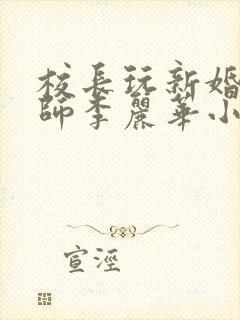 校長玩新婚
師李麗華小
宣淫